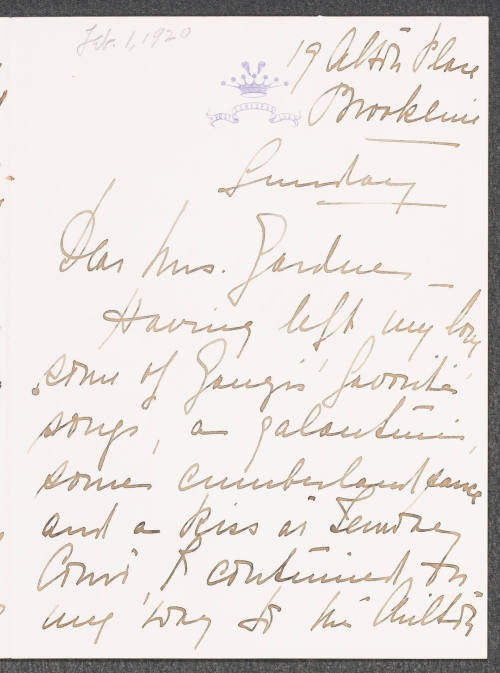 Feb. 1, 1920
19 Alton Place
Brookline
Sunday
Dear Mrs. Gardner –
Having left my boy
some of Gangi's favorite
songs, a galantine,
some cumberland sauce
and a kiss at
I continued on
my way to the Milton